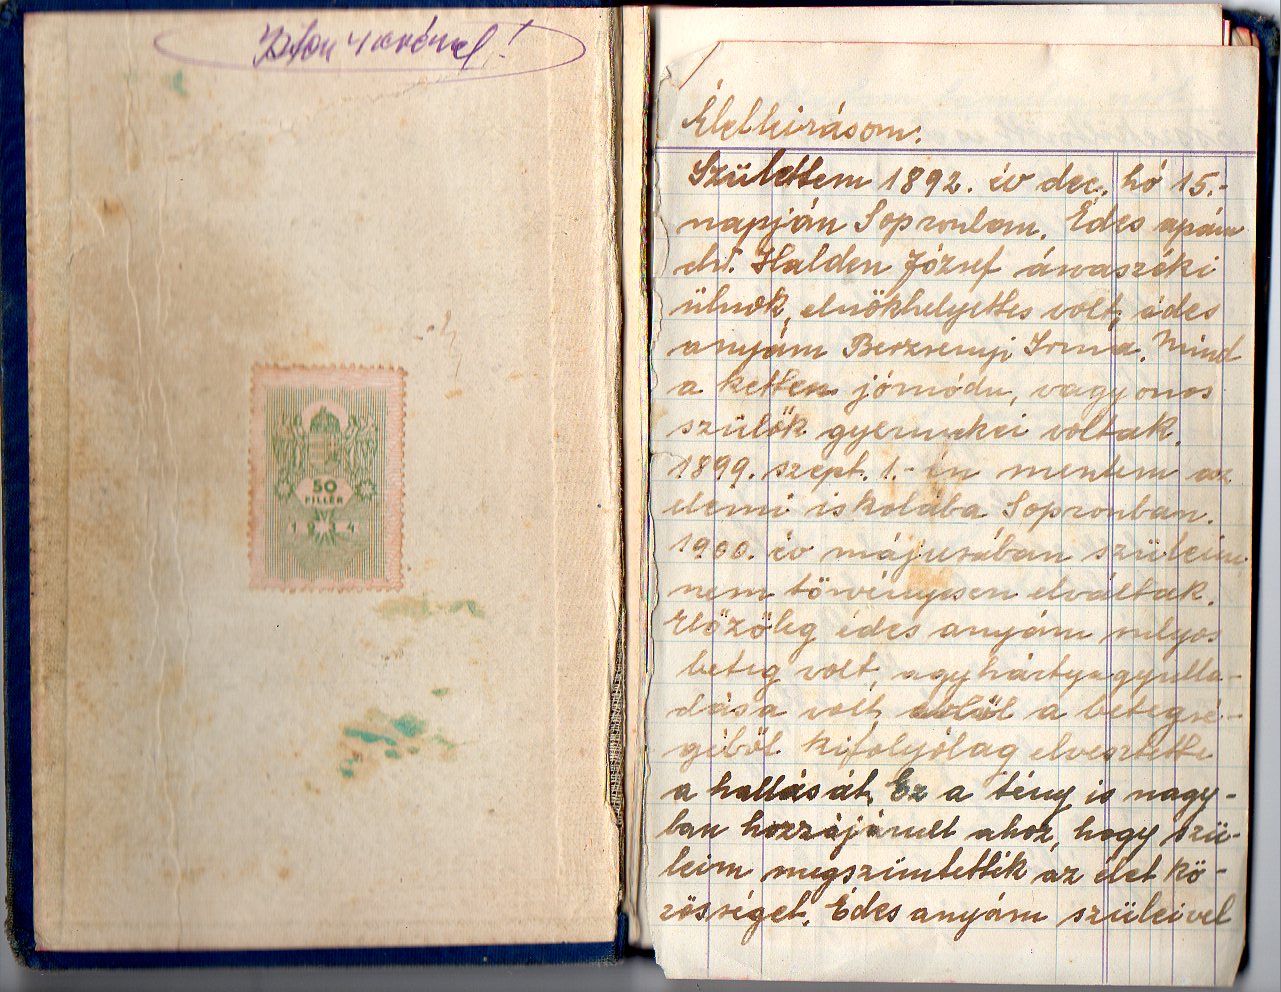 50
FILLÉR
Életleirásom.
Születtem 1892. év dec. hó 15.-
napján Sopronban. Édes apám
dr. Halden József árvaszéki
ülnök, elnökhelyettes volt, édes
anyám Berzsenyi Irma. Mind
a ketten jómódu, vagyonos
szülők gyermekei voltak.
1899. szept. 1.-én mentem az
elemi iskolába Sopronban.
1900. év májusában szüleim
nem törvényesen elváltak.
Előzőleg édes anyám sulyos
beteg volt, agyhártyagyulla-
dása volt, ebből a betegsé-
géből kifolyólag elvesztette
a hallását. Ez a tény is nagy-
ban hozzájárult ahoz, hogy szü-
leim megszüntették az élet kö-
zösséget. Édes anyám szüleivel